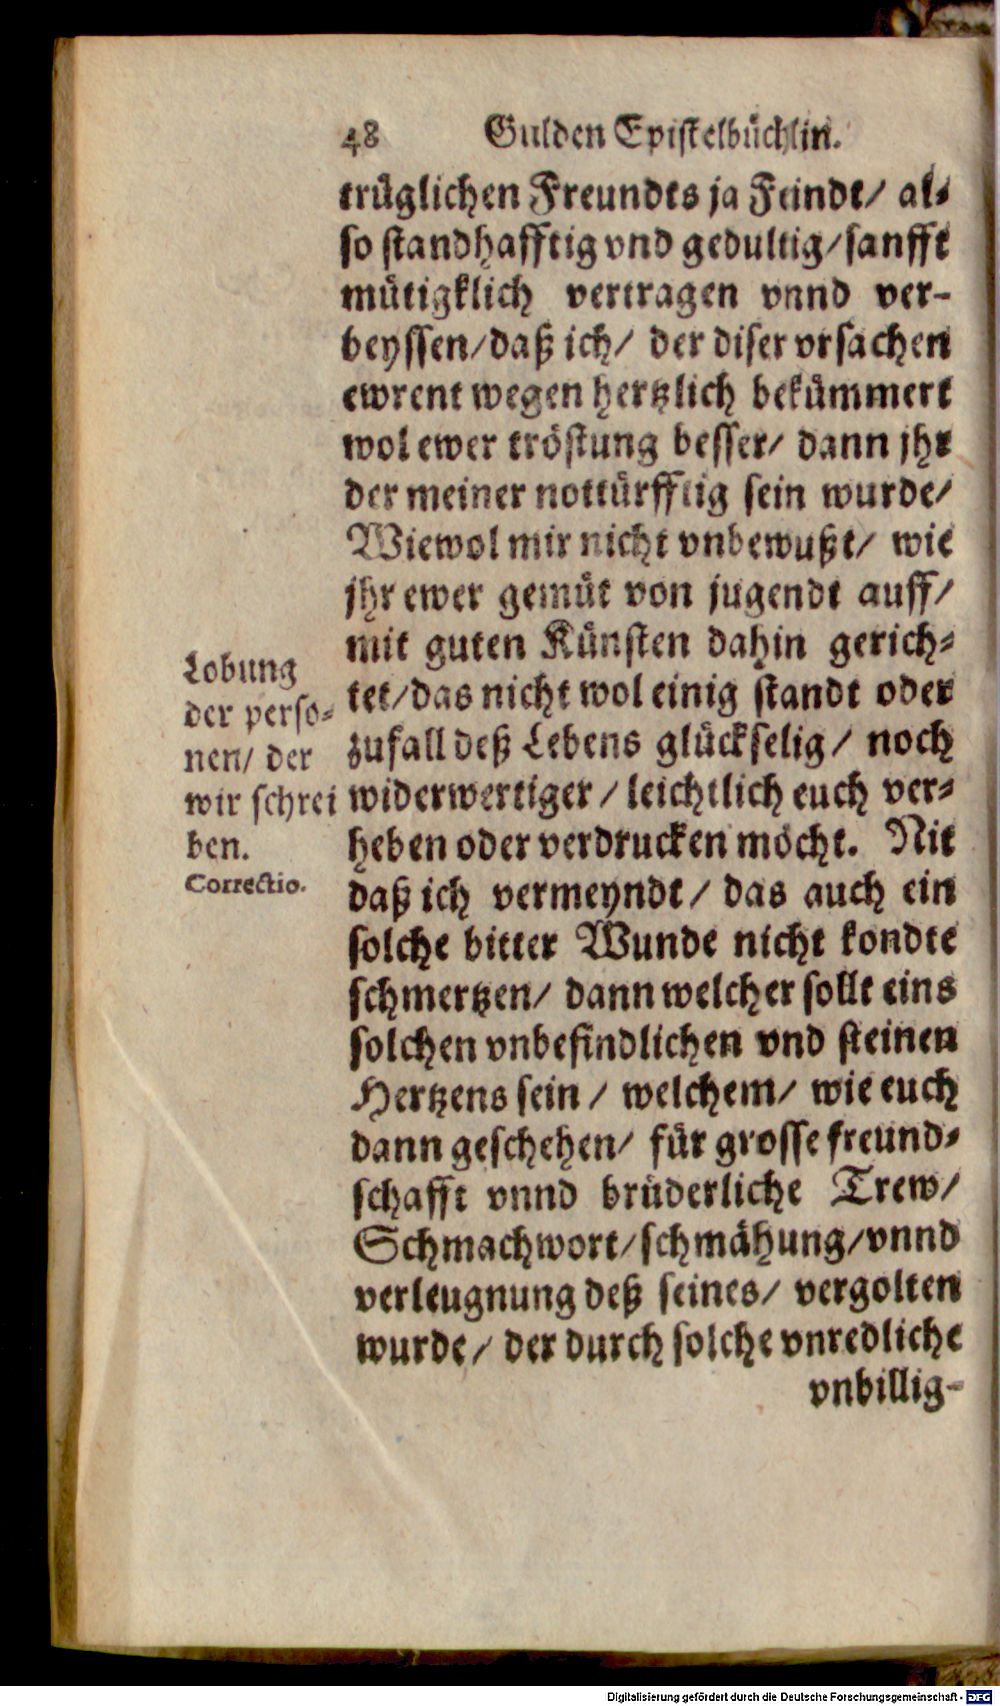 48 Gulden Epistelbüchlin.
trüglichen Freundts ja Feindt/ al-
so standhafftig vnd gedultig/sanfft
mütigklich vertragen vnnd ver-
beyssen/daß ich/ der diser vrsachen
ewrent wegen hertzlich bekümmert
wol ewer tröstung besser/ dann jhr
der meiner notturfftig sein wurde/
Wiewol mir nicht vnbewußt/ wie
jhr ewer gemüt von jugendt auff/
mit guten Künsten dahin gerich-
tet/das nicht wol einig standt oder
zufall deß Lebens glückselig/ noch
widerwertiger/ leichtlich euch ver-
heben oder verdrucken möcht. Nit
daß ich vermeyndt/ das auch ein
solche bitter Wunde nicht kondte
schmertzen/ dann welcher sollt eins
solchen vnbefindlichen vnd steinen
Hertzens sein/ welchem/ wie euch
dann geschehen/ für grosse freund-
schafft vnnd brüderliche Trew/
Schmachwort/schmähung/vnnd
verleugnung deß seines/ vergolten
wurde/ der durch solche vnredliche
vnbillig-
Lobung
der perso-
nen/ der
wir schrei
ben.
Correctio.
Digitalisierung gefördert durch die Deutsche Forschungsgemeinschaft - DFG